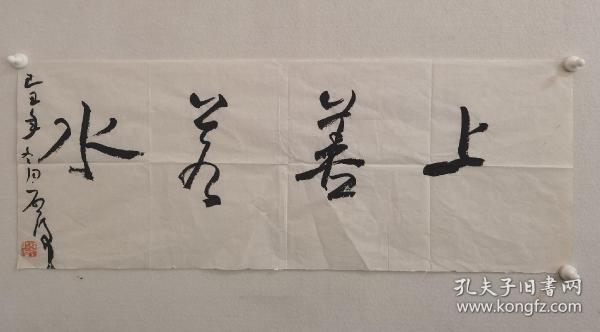 上善若水
己丑年冬月
孔夫子旧书网
www.kongfz.com